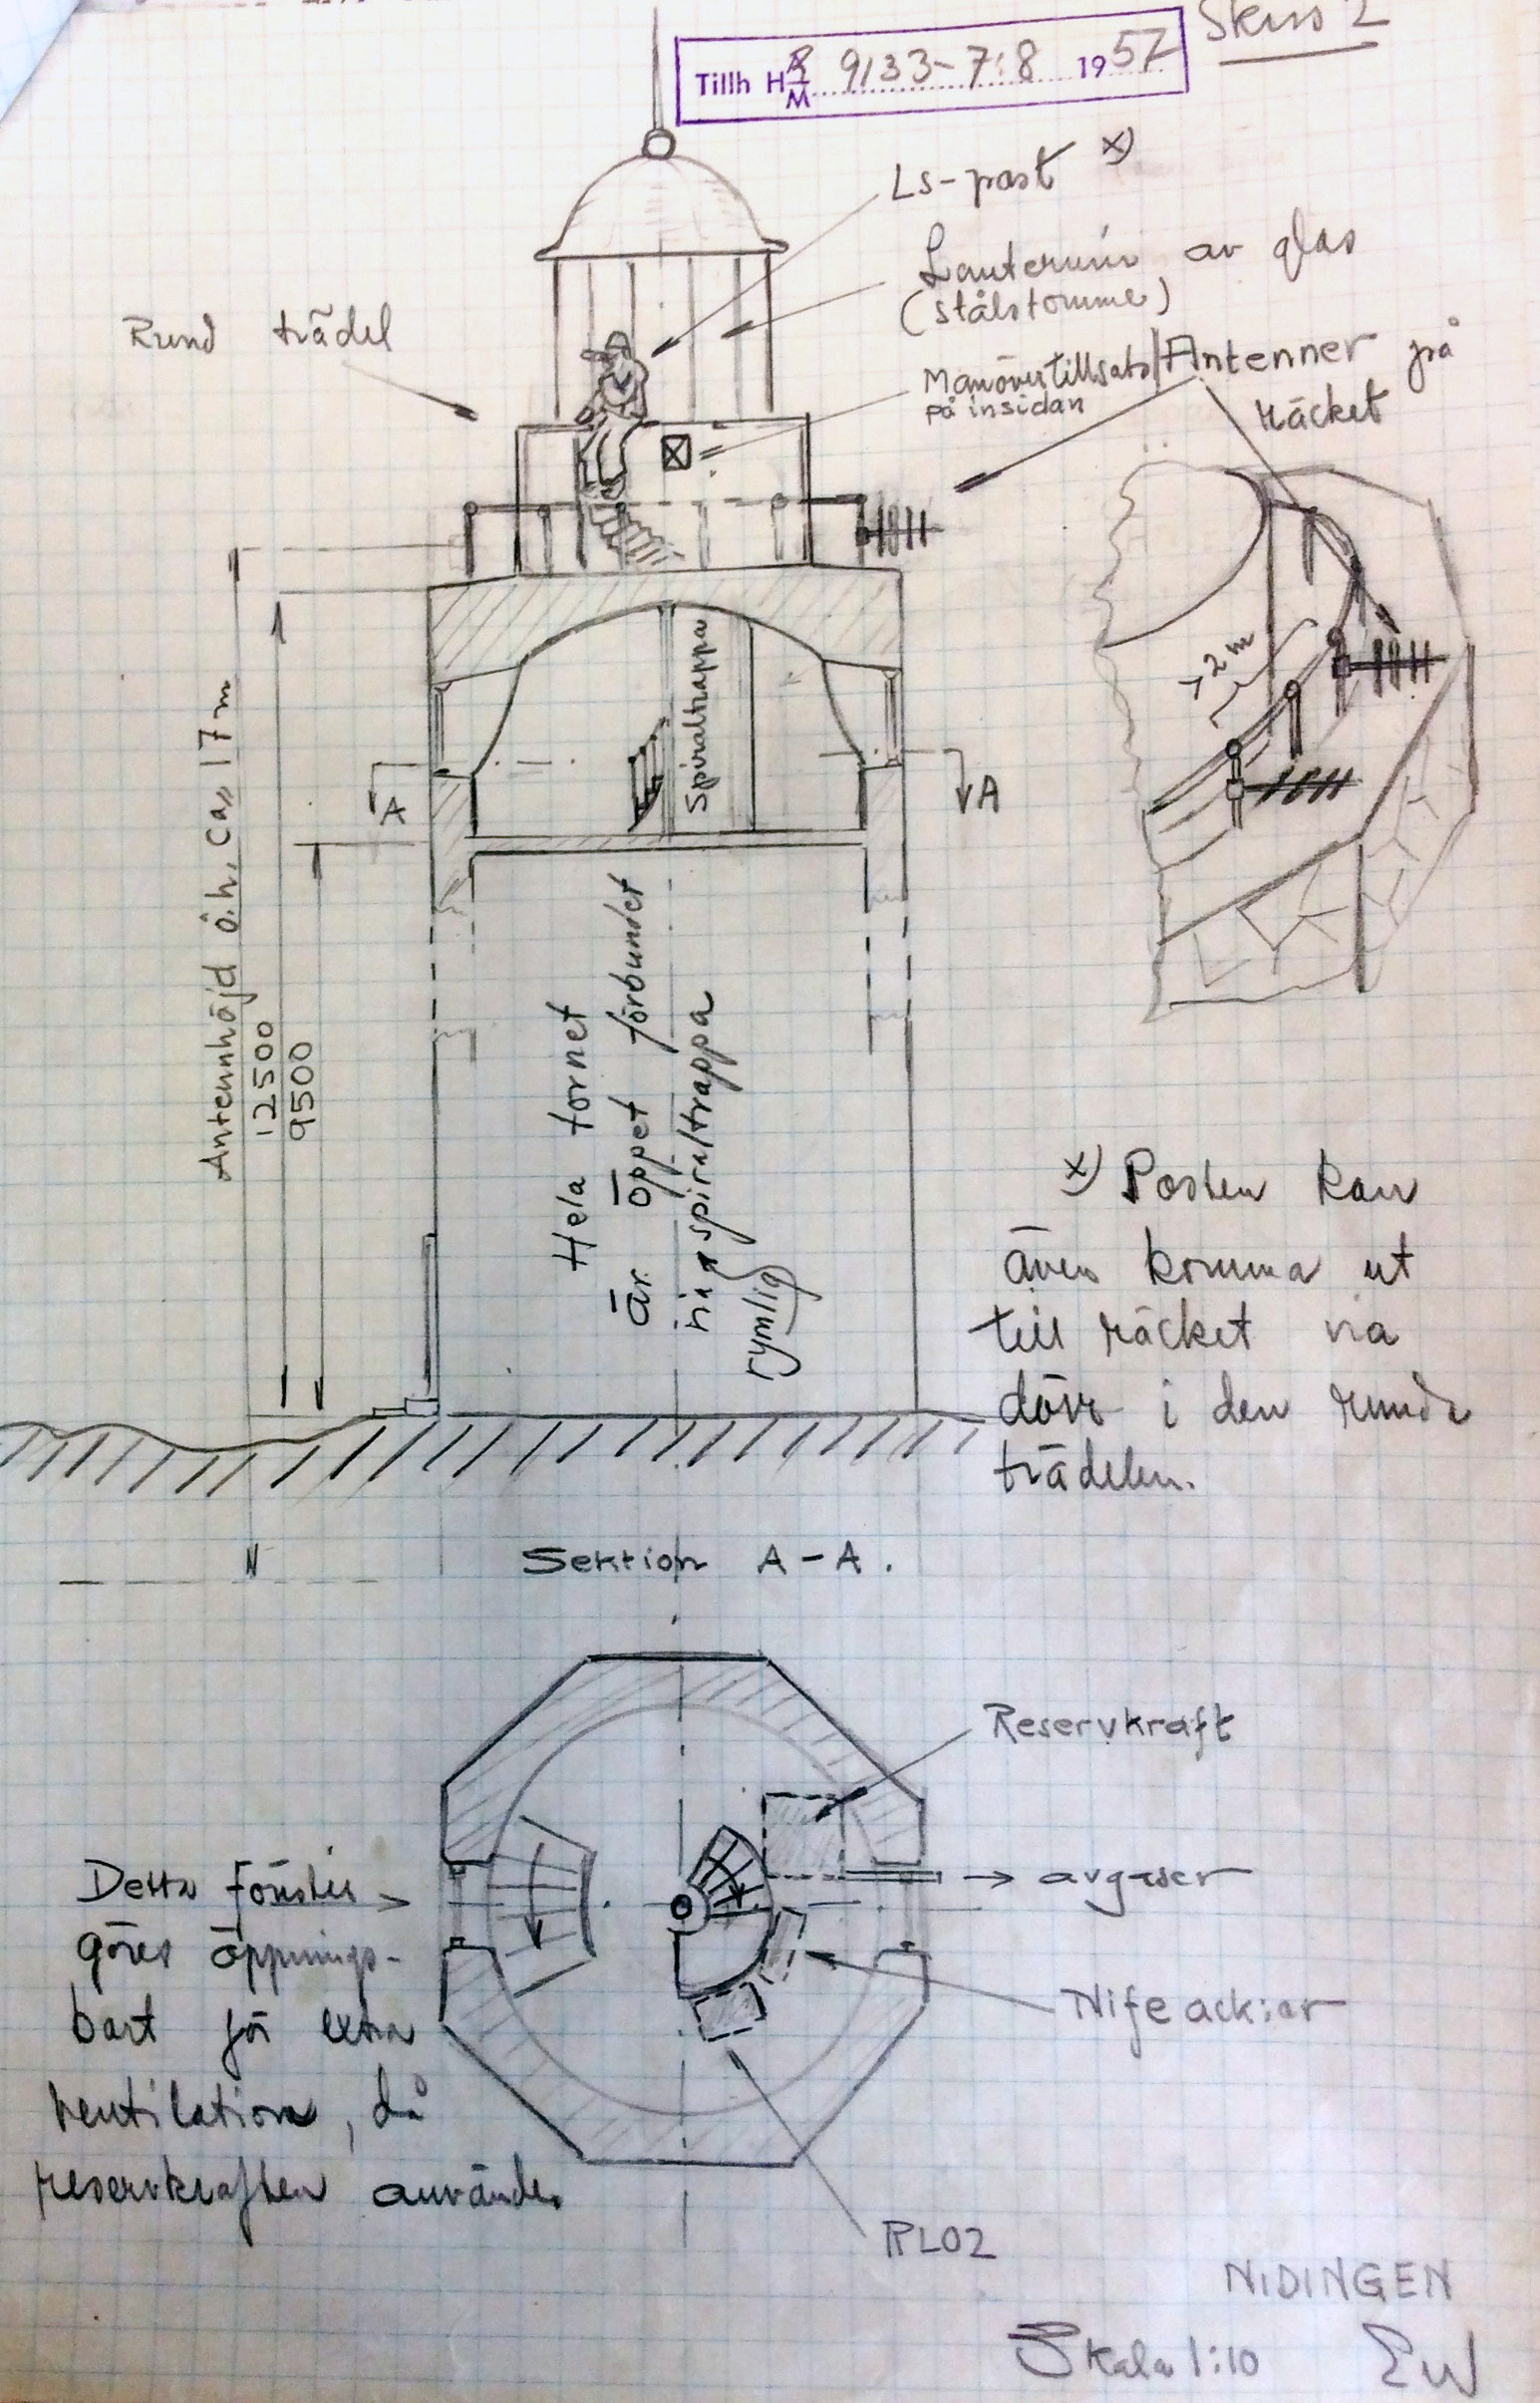 Skiss 2
Tillh H R/M 9133-7:8 1957
Ls-post x)
Lanternin av glas
(stålstomme)
Rund trädel
Manövertillsats
på insidan
Antenner på
räcket
>2m
Spiraltrappa
A
A
Antennhöjd ö.h. ca 17 m
12500
9500
Hela tornet
är öppet förbundet
via spiraltrappa
rymlig
x) Posten kan
även komma ut
till räcket via
dörr i den runda
trädelen.
N
Sektion A-A.
Reservkraft
→ avgaser
Detta fönster
göres öppnings-
bart för extra
ventilation, då
reservkraften användes
Nife ackar
RL02
NIDINGEN
Skala 1:10 EW